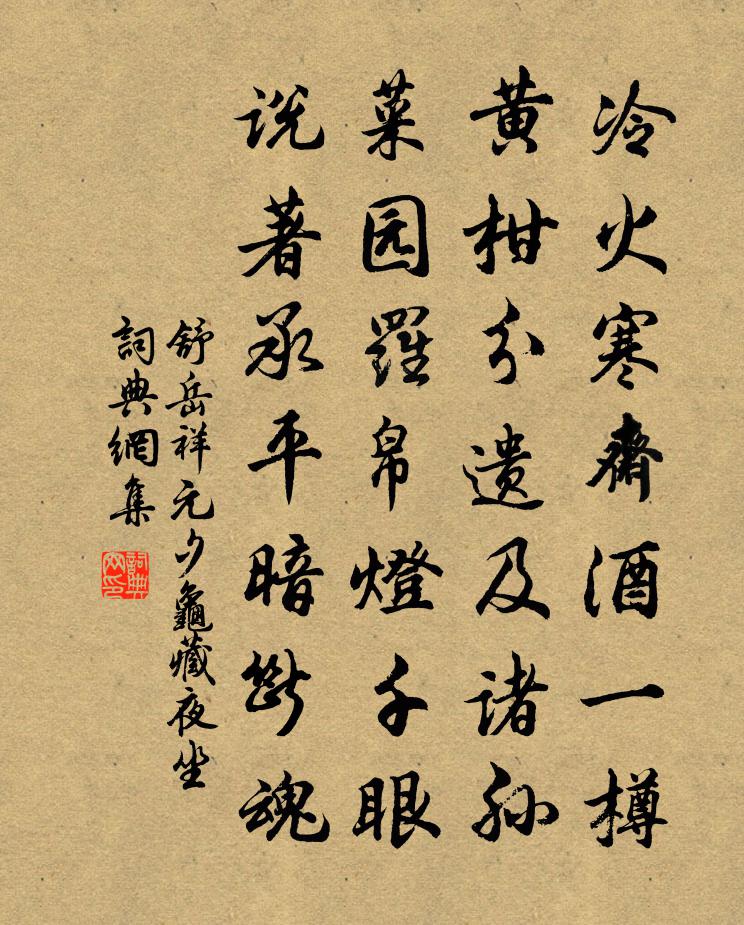 冷火寒齋酒一樽
黄柑分遗及諸孙
菜园羅帛燈千眼
说著承平暗斷魂
舒岳祥元夕龜藏夜坐
詞典網集
詞典網印